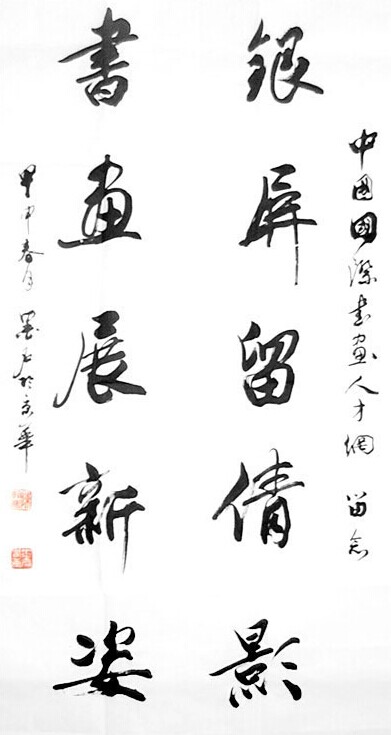 中国國際书画人才網 留念
銀屏留倩影
書畫展新姿
甲申春月墨石於京華